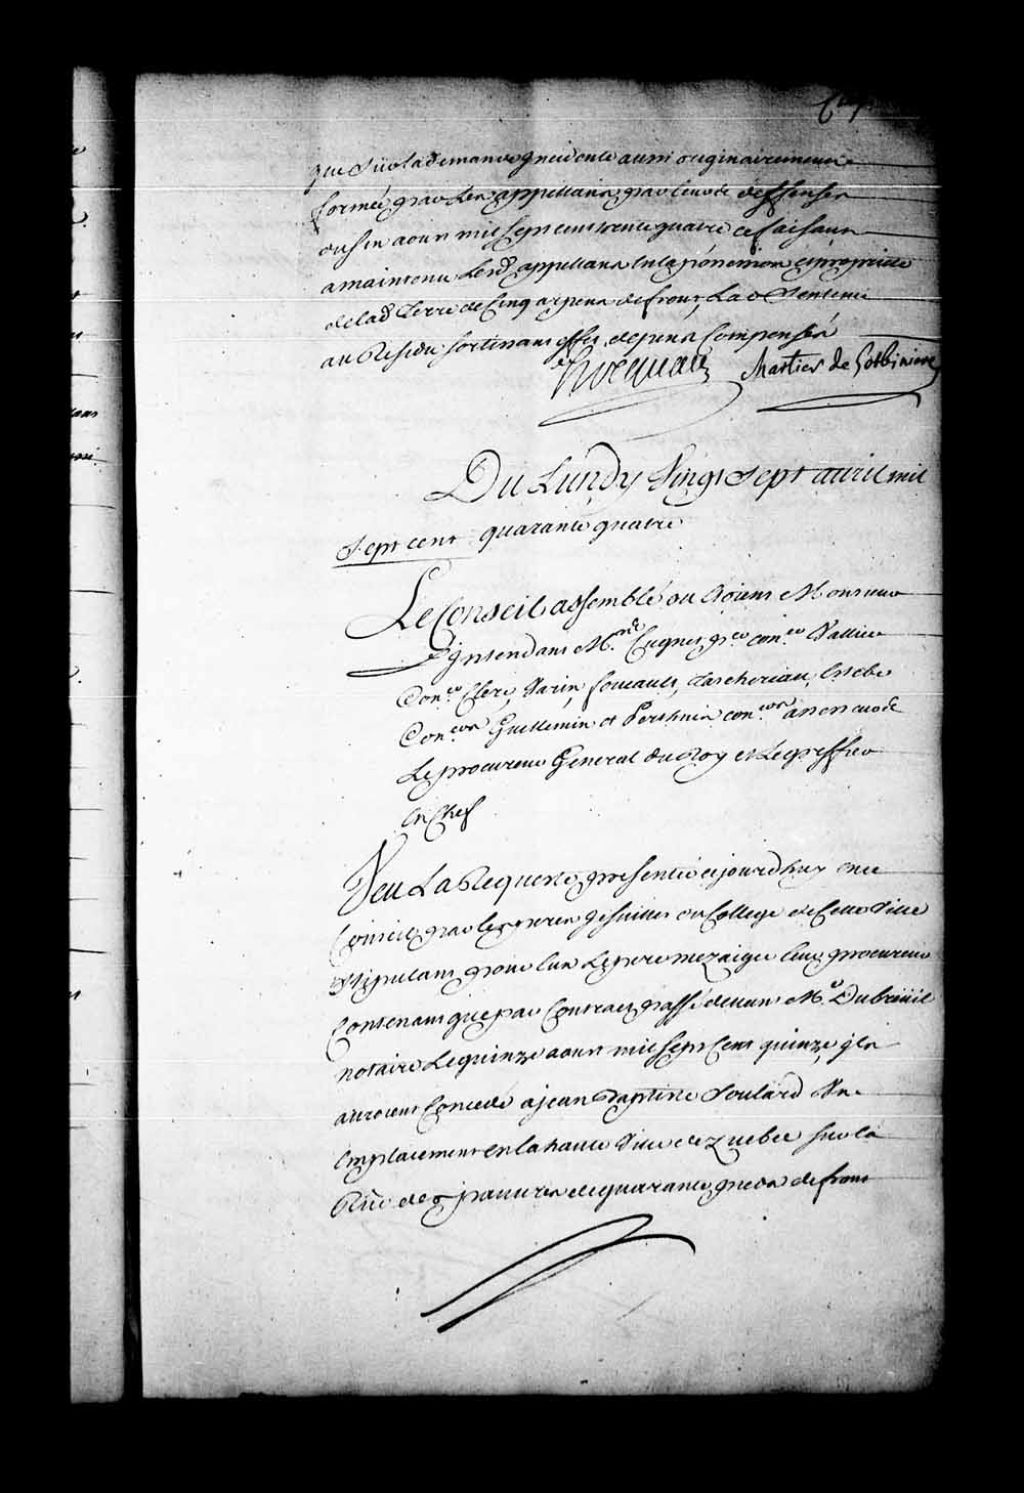 que sur la demande incidente aussi originairement
formée par les appellants par leurs deffenses
du six aoust mil sept cent trente quatre ce faisant
a maintenu lesd. appellans en la possession et propriété
de lad. Terre de Cinq arpens de front, La Sentence
au Residu sortissant effet, depens Compensés
Hocquart Chartier de Lotbiniere
Du Lundy Vingt Sept avril mil
Sept cent quarante quatre
Le Conseil assemblé ou étoient Monsieur
L'Intendant Mrs. Cugnet pr. con.er Vallier
Con.er Clerc, Varin, foucault, Taschereau, Estebe
Con.ers Guillemin et Perthuis con.ers assesseurs
Le procureur General du Roy et Le greffier
en Chef
Veu La Requeste presentée cejourd'huy en ce
Conseil par les peres Jesuites du College de Cette Ville
stipulant pour Eux Le pere mezaiger leur procureur
Contenant que par Contract passé devant Me. Dubreüil
notaire Le quinze aoust mil sept Cent quinze, ils
auroient Concedé a jean Baptiste Soulard Un
Emplacement en la haute Ville de Quebec sur la
Rüe des pauvres de quarante pieds de front